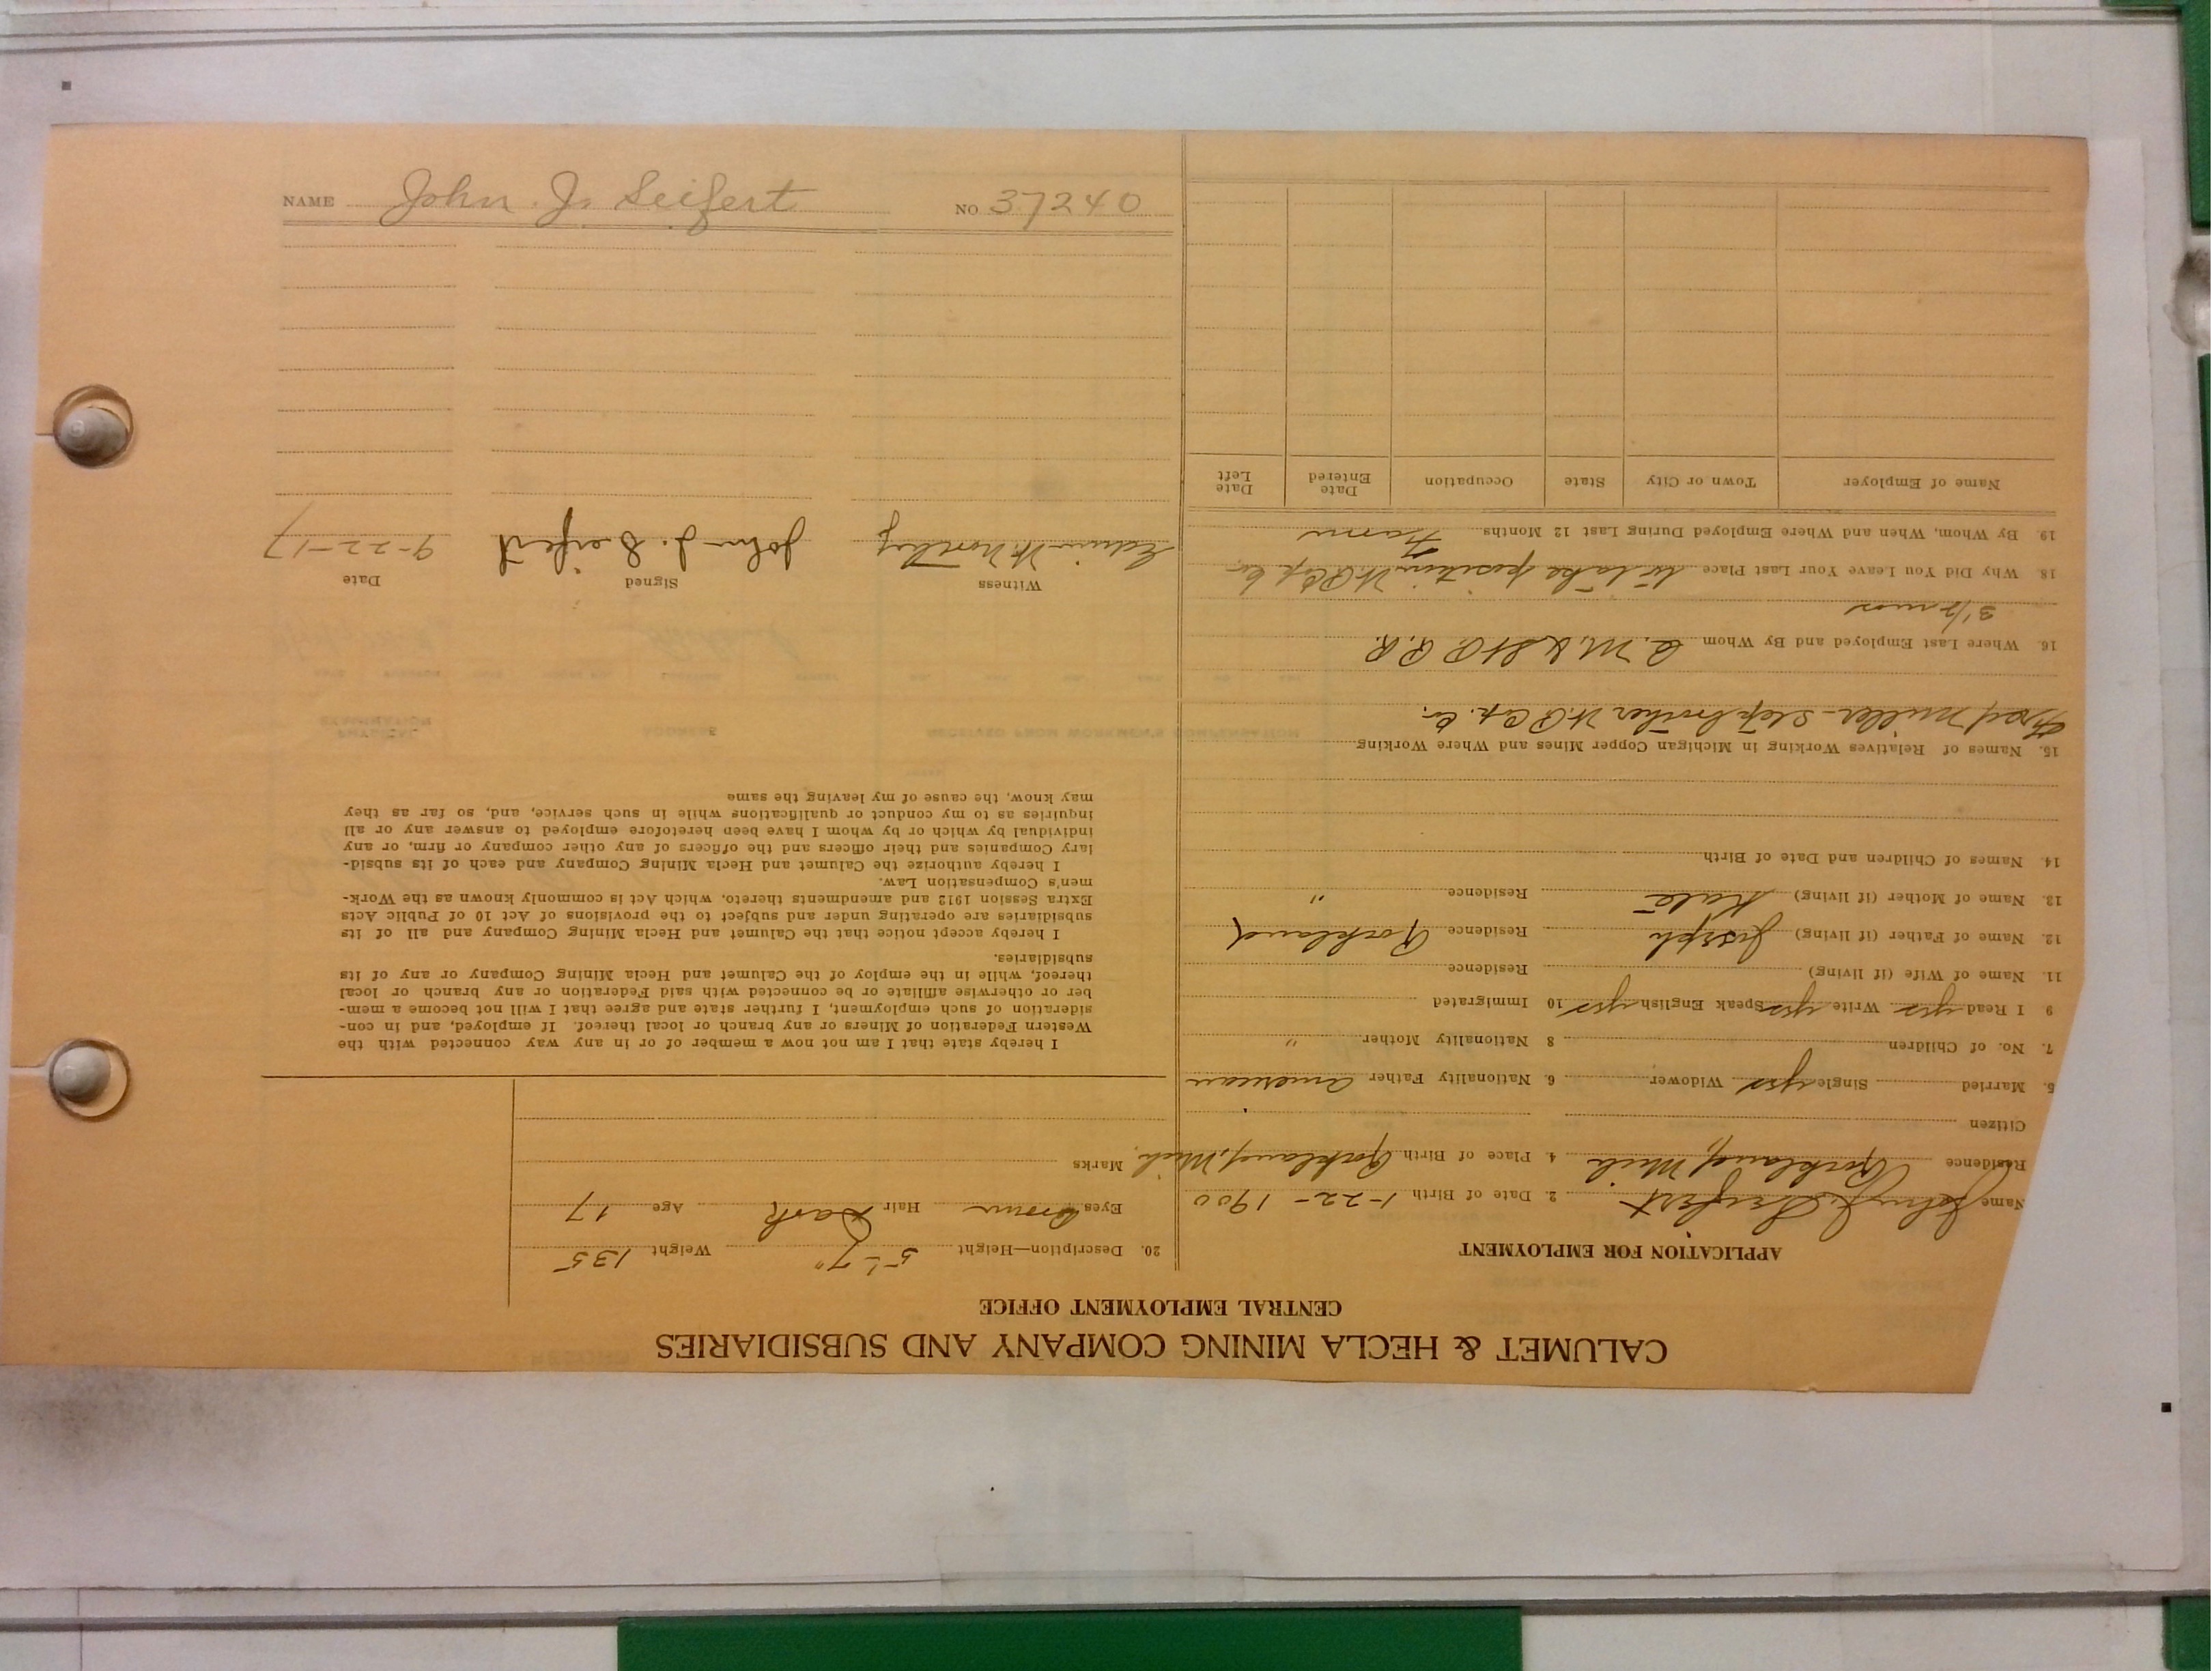 CALUMET & HECLA MINING COMPANY AND SUBSIDIARIES
CENTRAL EMPLOYMENT OFFICE
APPLICATION FOR EMPLOYMENT
Name John J. Seifert 2. Date of Birth 1-22-1900
Residence Rockland, Mich 4. Place of Birth Rockland, Mich.
Citizen
5. Married Single yes Widower 6. Nationality Father American
7. No. of Children 8 Nationality Mother "
9 I Read yes Write yes Speak English yes 10 Immigrated
11. Name of Wife (if living) Residence
12. Name of Father (if living) Joseph Residence Rockland
13. Name of Mother (if living) Kate Residence "
14. Names of Children and Date of Birth
15. Names of Relatives Working in Michigan Copper Mines and Where Working
Fred Miller - Stepbrother W.P. Cop. Co.
16. Where Last Employed and By Whom C. M. & St P. R.R.
3 1/2 mos
18. Why Did You Leave Your Last Place to take position W.P. Cop. Co
19. By Whom, When and Where Employed During Last 12 Months Same
Name of Employer Town or City State Occupation Date Entered Date Left
20. Description—Height 5'-7" Weight 135
Eyes Brown Hair Dark Age 17
Marks
I hereby state that I am not now a member of or in any way connected with the
Western Federation of Miners or any branch or local thereof. If employed, and in con-
sideration of such employment, I further state and agree that I will not become a mem-
ber or otherwise affiliate or be connected with said Federation or any branch or local
thereof, while in the employ of the Calumet and Hecla Mining Company or any of its
subsidiaries.
I hereby accept notice that the Calumet and Hecla Mining Company and all of its
subsidiaries are operating under and subject to the provisions of Act 10 of Public Acts
Extra Session 1912 and amendments thereto, which Act is commonly known as the Work-
men's Compensation Law.
I hereby authorize the Calumet and Hecla Mining Company and each of its subsid-
iary Companies and their officers and the officers of any other company or firm, or any
individual by which or by whom I have been heretofore employed to answer any or all
inquiries as to my conduct or qualifications while in such service, and, so far as they
may know, the cause of my leaving the same
Witness Signed Date
Edwin W. John J. Seifert 9-22-17
NAME John J. Seifert NO 37240